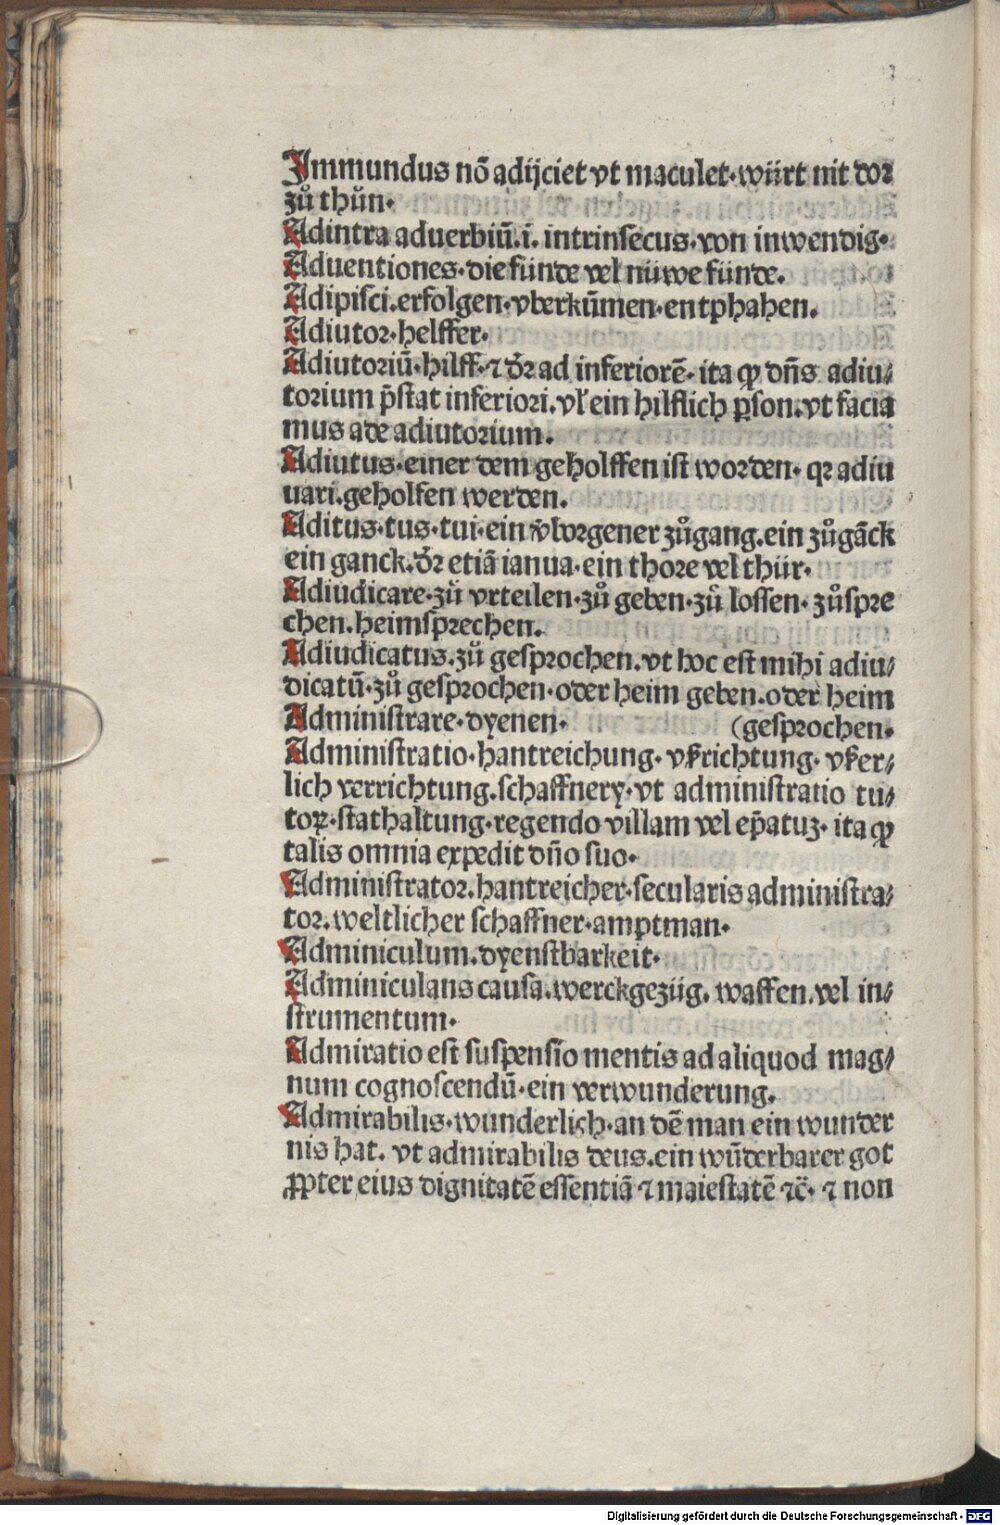 Immundus nō adijciet vt maculet·würt nit dor
zů thůn·
Adintra aduerbiū.i. intrinsecus·von inwendig·
Aduentiones·die fünde vel nüwe fünde.
Adipisci.erfolgen·vberkūmen·entphahen.
Adiutor·helffer·
Adiutoriū·hilff·⁊ dr̄ ad inferiorē·ita ꝙ dn̄s adiu⸗
torium p̄stat inferiori.vl̓ ein hilflich ꝑson.vt facia
mus ade adiutorium.
Adiutus·einer dem geholffen ist worden· qꝛ adiu
uari.geholfen werden.
Aditus·tus·tui·ein v̄borgener zůgang.ein zůgāck
ein ganck.dr̄ etiā ianua·ein thore vel thür·
Adiudicare·zů vrteilen·zů geben·zů lossen· zůspre
chen.heimsprechen.
Adiudicatus.zů gesprochen.vt hoc est mihi adiu⸗
dicatū·zů gesprochen·oder heim geben.oder heim
Administrare·dyenen· (gesprochen·
Administratio·hantreichung· vßrichtung· vßer⸗
lich verrichtung.schaffnery·vt administratio tu⸗
toꝝ·stathaltung·regendo villam vel ep̄atuꝫ· ita ꝙ
talis omnia expedit dn̄o suo·
Administrator.hantreicher·secularis administra⸗
tor.weltlicher schaffner·amptman·
Adminiculum.dyenstbarkeit·
Adminiculans causa.werckgezüg. waffen.vel in⸗
strumentum·
Admiratio est suspensio mentis ad aliquod mag⸗
num cognoscendū·ein verwunderung.
Admirabilis·wunderlich·an dē man ein wunder
nis hat. vt admirabilis deus.ein wūderbarer got
ꝓpter eius dignitatē essentiā ⁊ maiestatē ⁊c̄· ⁊ non
Digitalisierung gefördert durch die Deutsche Forschungsgemeinschaft - DFG